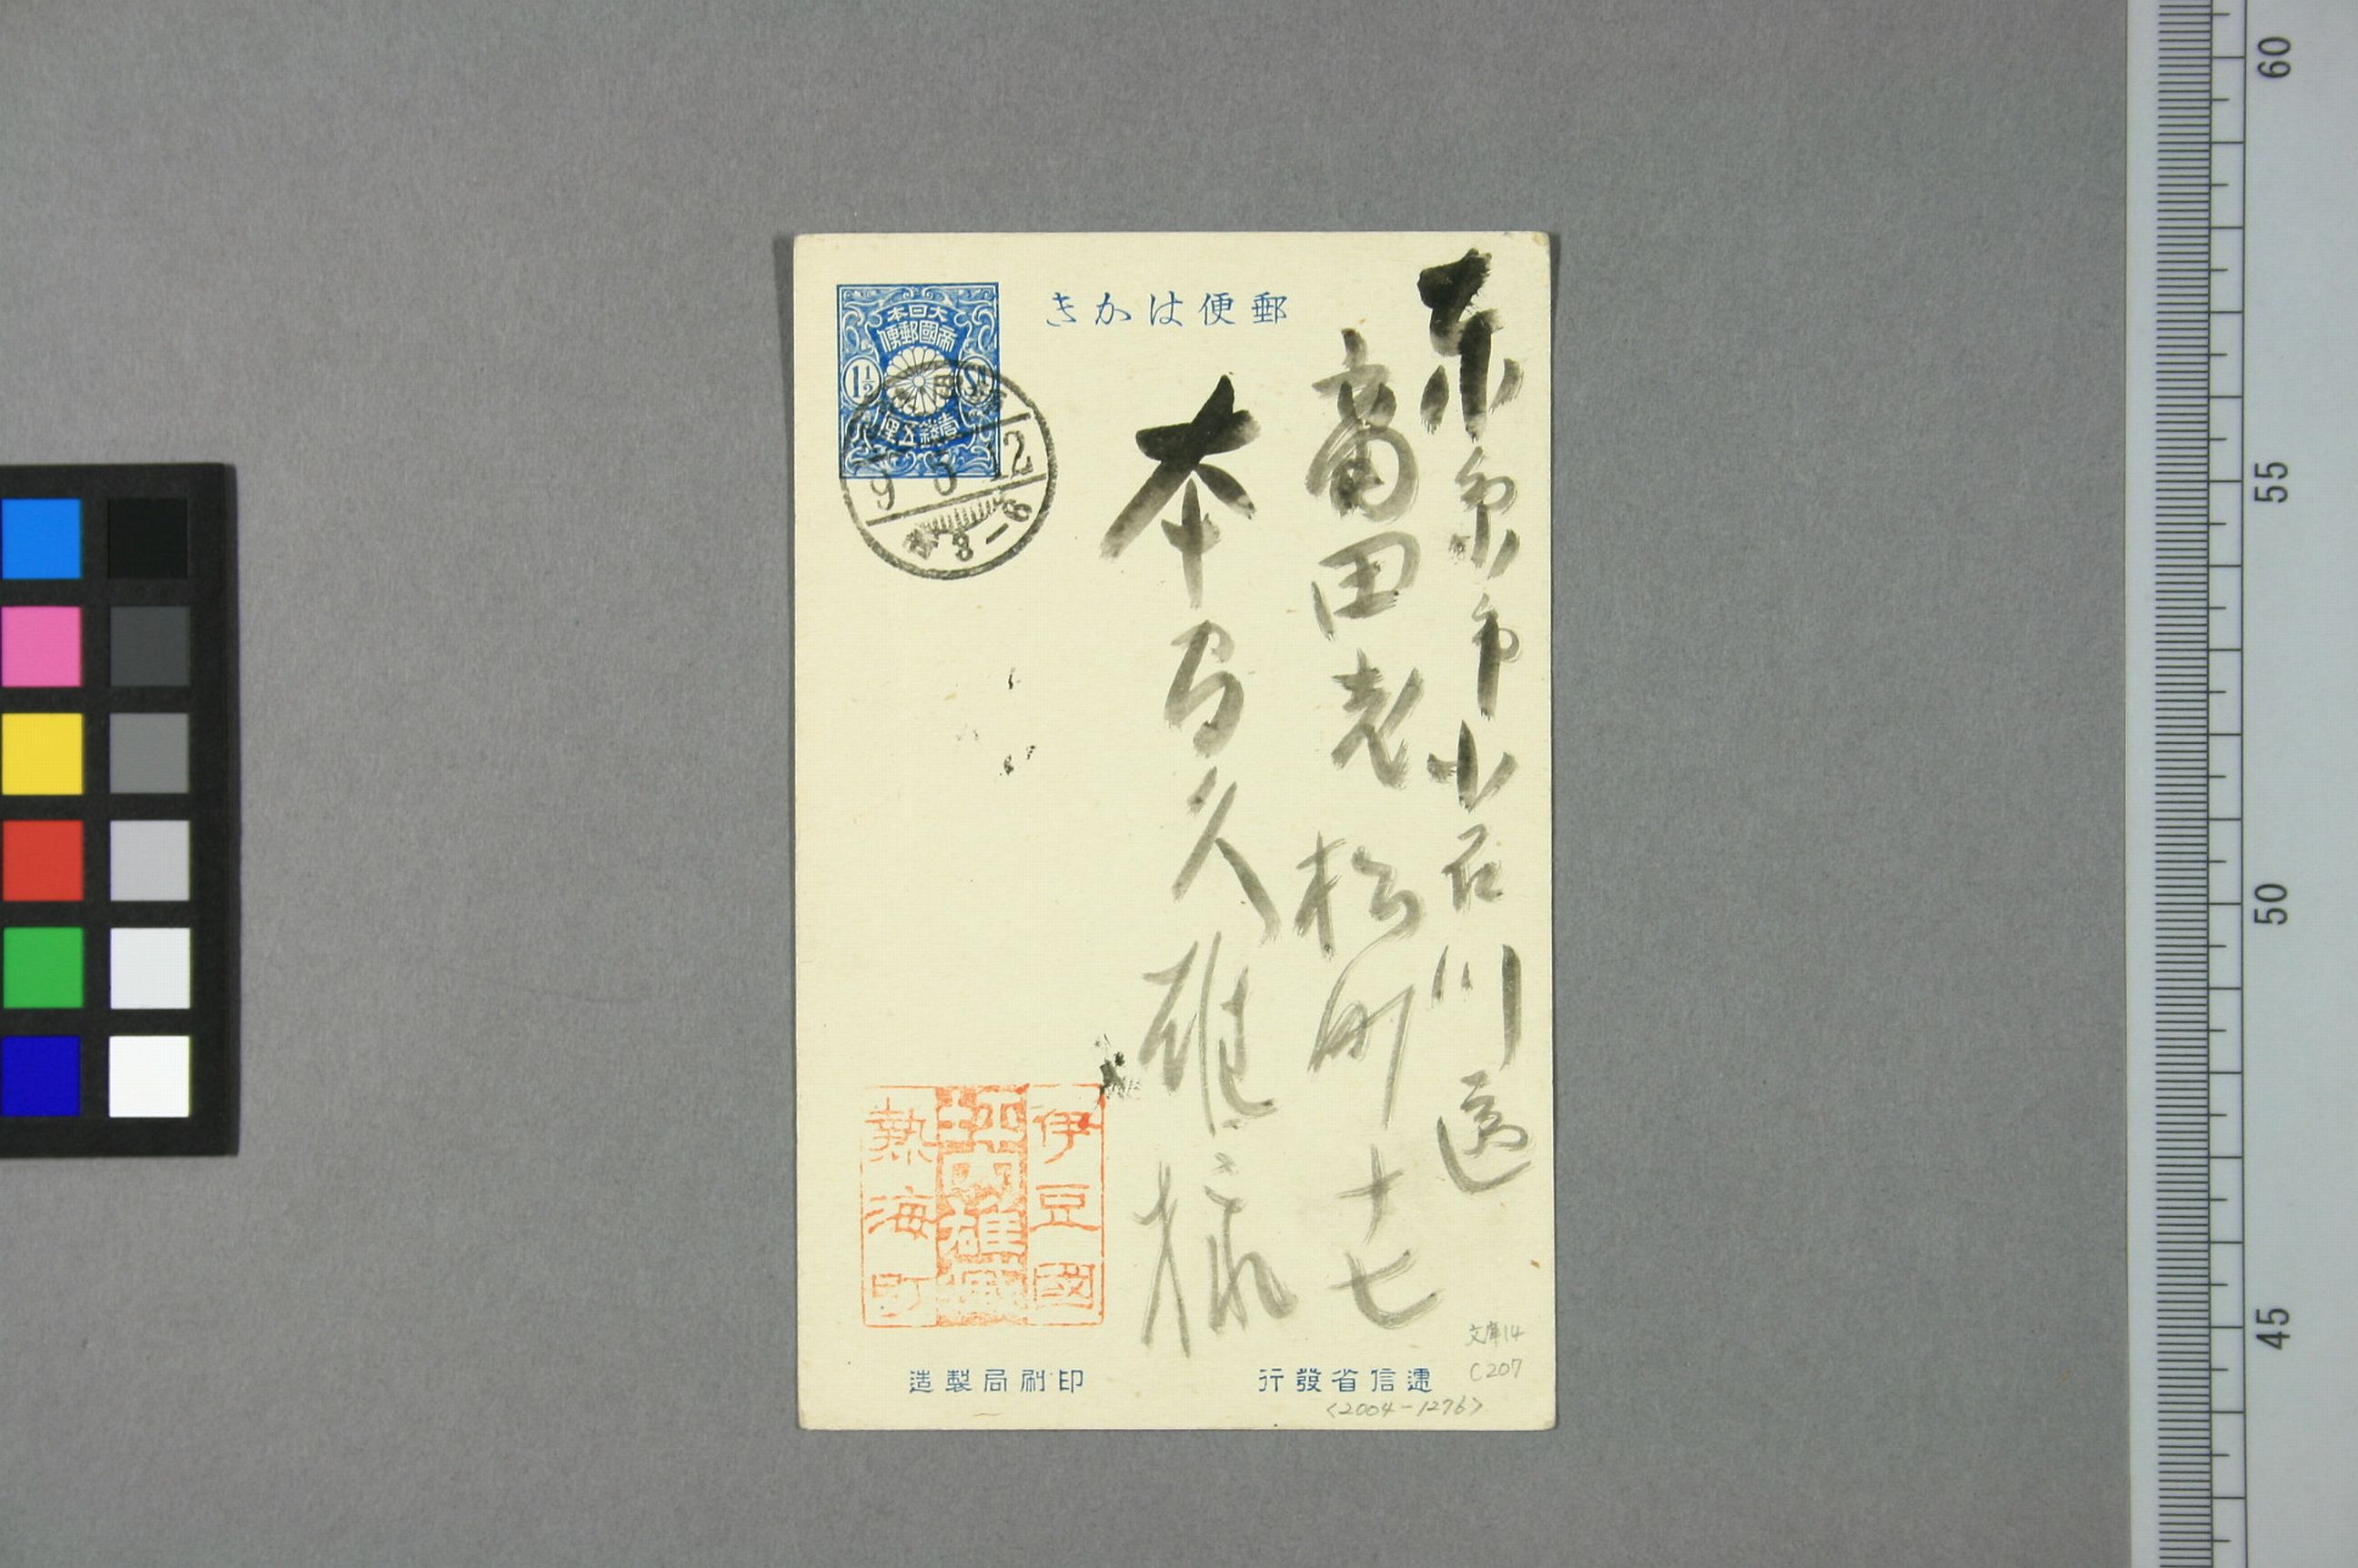 郵便はかき
大日本
帝國郵便
1½
Sn
壹錢五厘
9 3 12
3-6
東京市小石川區
高田老松町十七
本間久雄様
伊豆國
坪内雄藏
熱海町
遞信省發行
印刷局製造
文庫14
C207
<2004-1276>
60
55
50
45